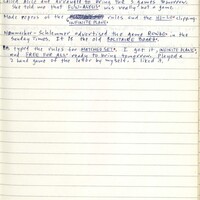 Called Alice but arranged to bring the 3 games tomorrow.
She told me that was really not a game.
Made copies of the rules and the clipping
INFINITE PLANE.
Hammacher-Schlemmer advertised the game in the
Sunday Times. It is the old SOLITAIRE BOARD.
typed the rules for I got it, INFINITE PLANE,
and FREE FOR ALL ready to bring tomorrow. Played a
2 hand game of the latter by myself. I liked it.